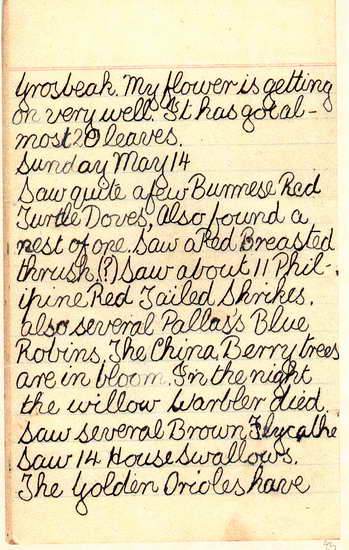 Grosbeak. My flower is getting
on very well. It has got al-
most 20 leaves.
Sunday May 14
Saw quite a few Burmese Red
Turtle Doves, Also found a
nest of one. Saw a Red Breasted
thrush (?) Saw about 11 Phil-
ipine Red Tailed Shrikes.
also several Pallas's Blue
Robins. The China Berry trees
are in bloom. In the night
the willow Warbler died.
Saw several Brown Flycathe
Saw 14 House Swallows.
The Golden Orioles have